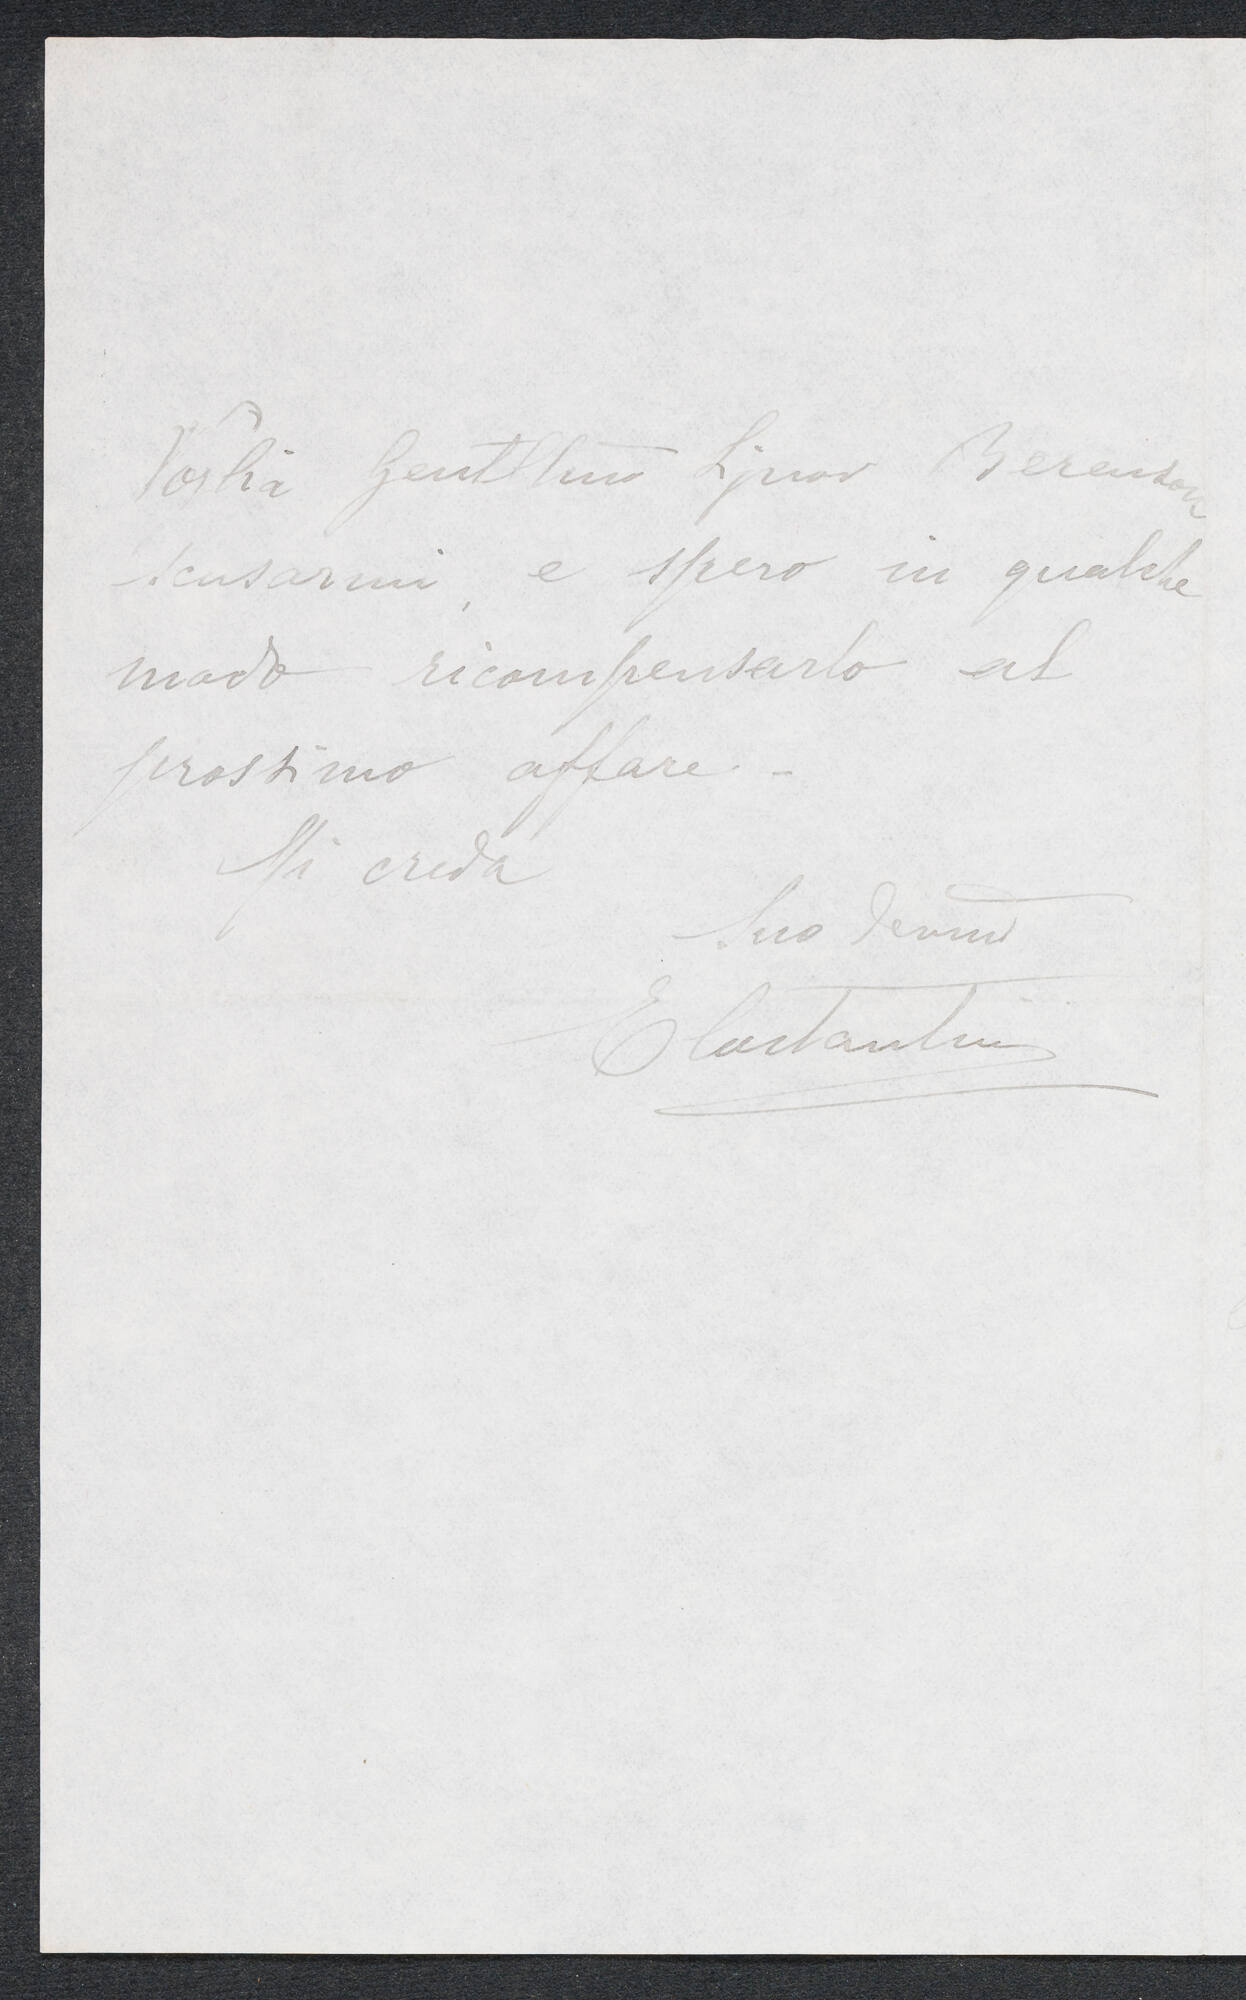 Voglia Gentilmo Signor Berenson
scusarmi, e spero in qualche
modo ricompensarlo al
prossimo affare -
Mi creda
Suo Devmo
E Costantini